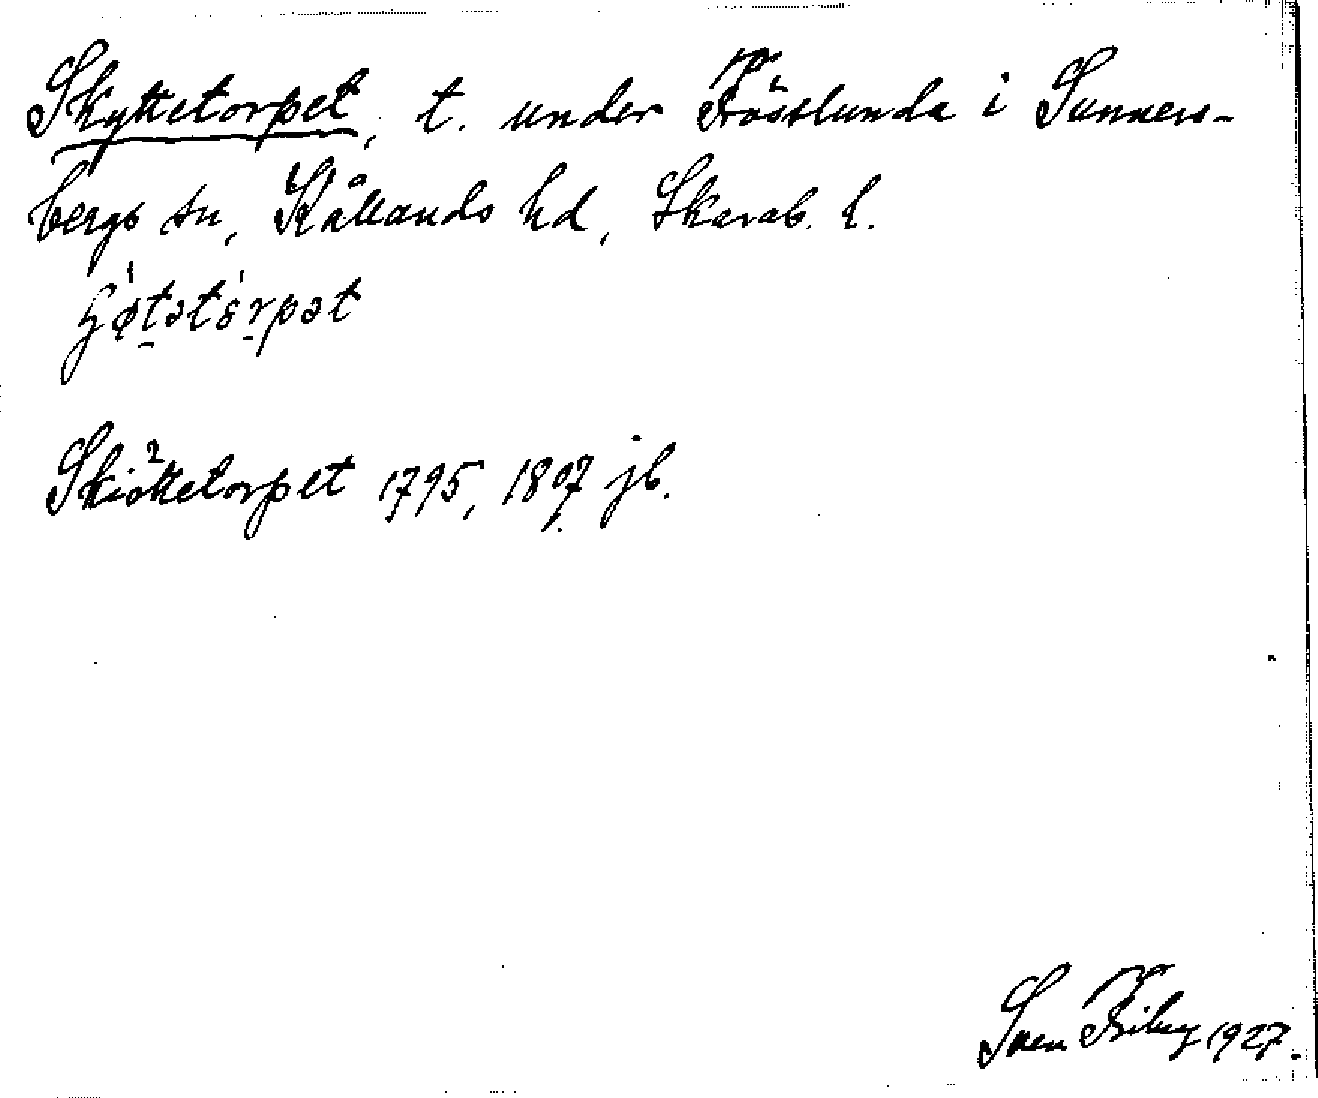 Skyttetorpet, t. under Frösslunda i Sunners-
bergs sn, Kållands hd, Skarab. l.
Skiöttetorpet 1795, 1807 jb.
Sven Friberg 1927.